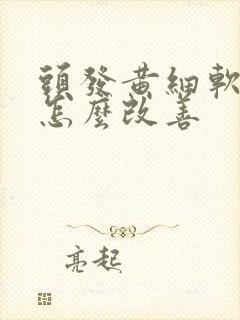 頭發黃細軟
怎麼改善
亮起